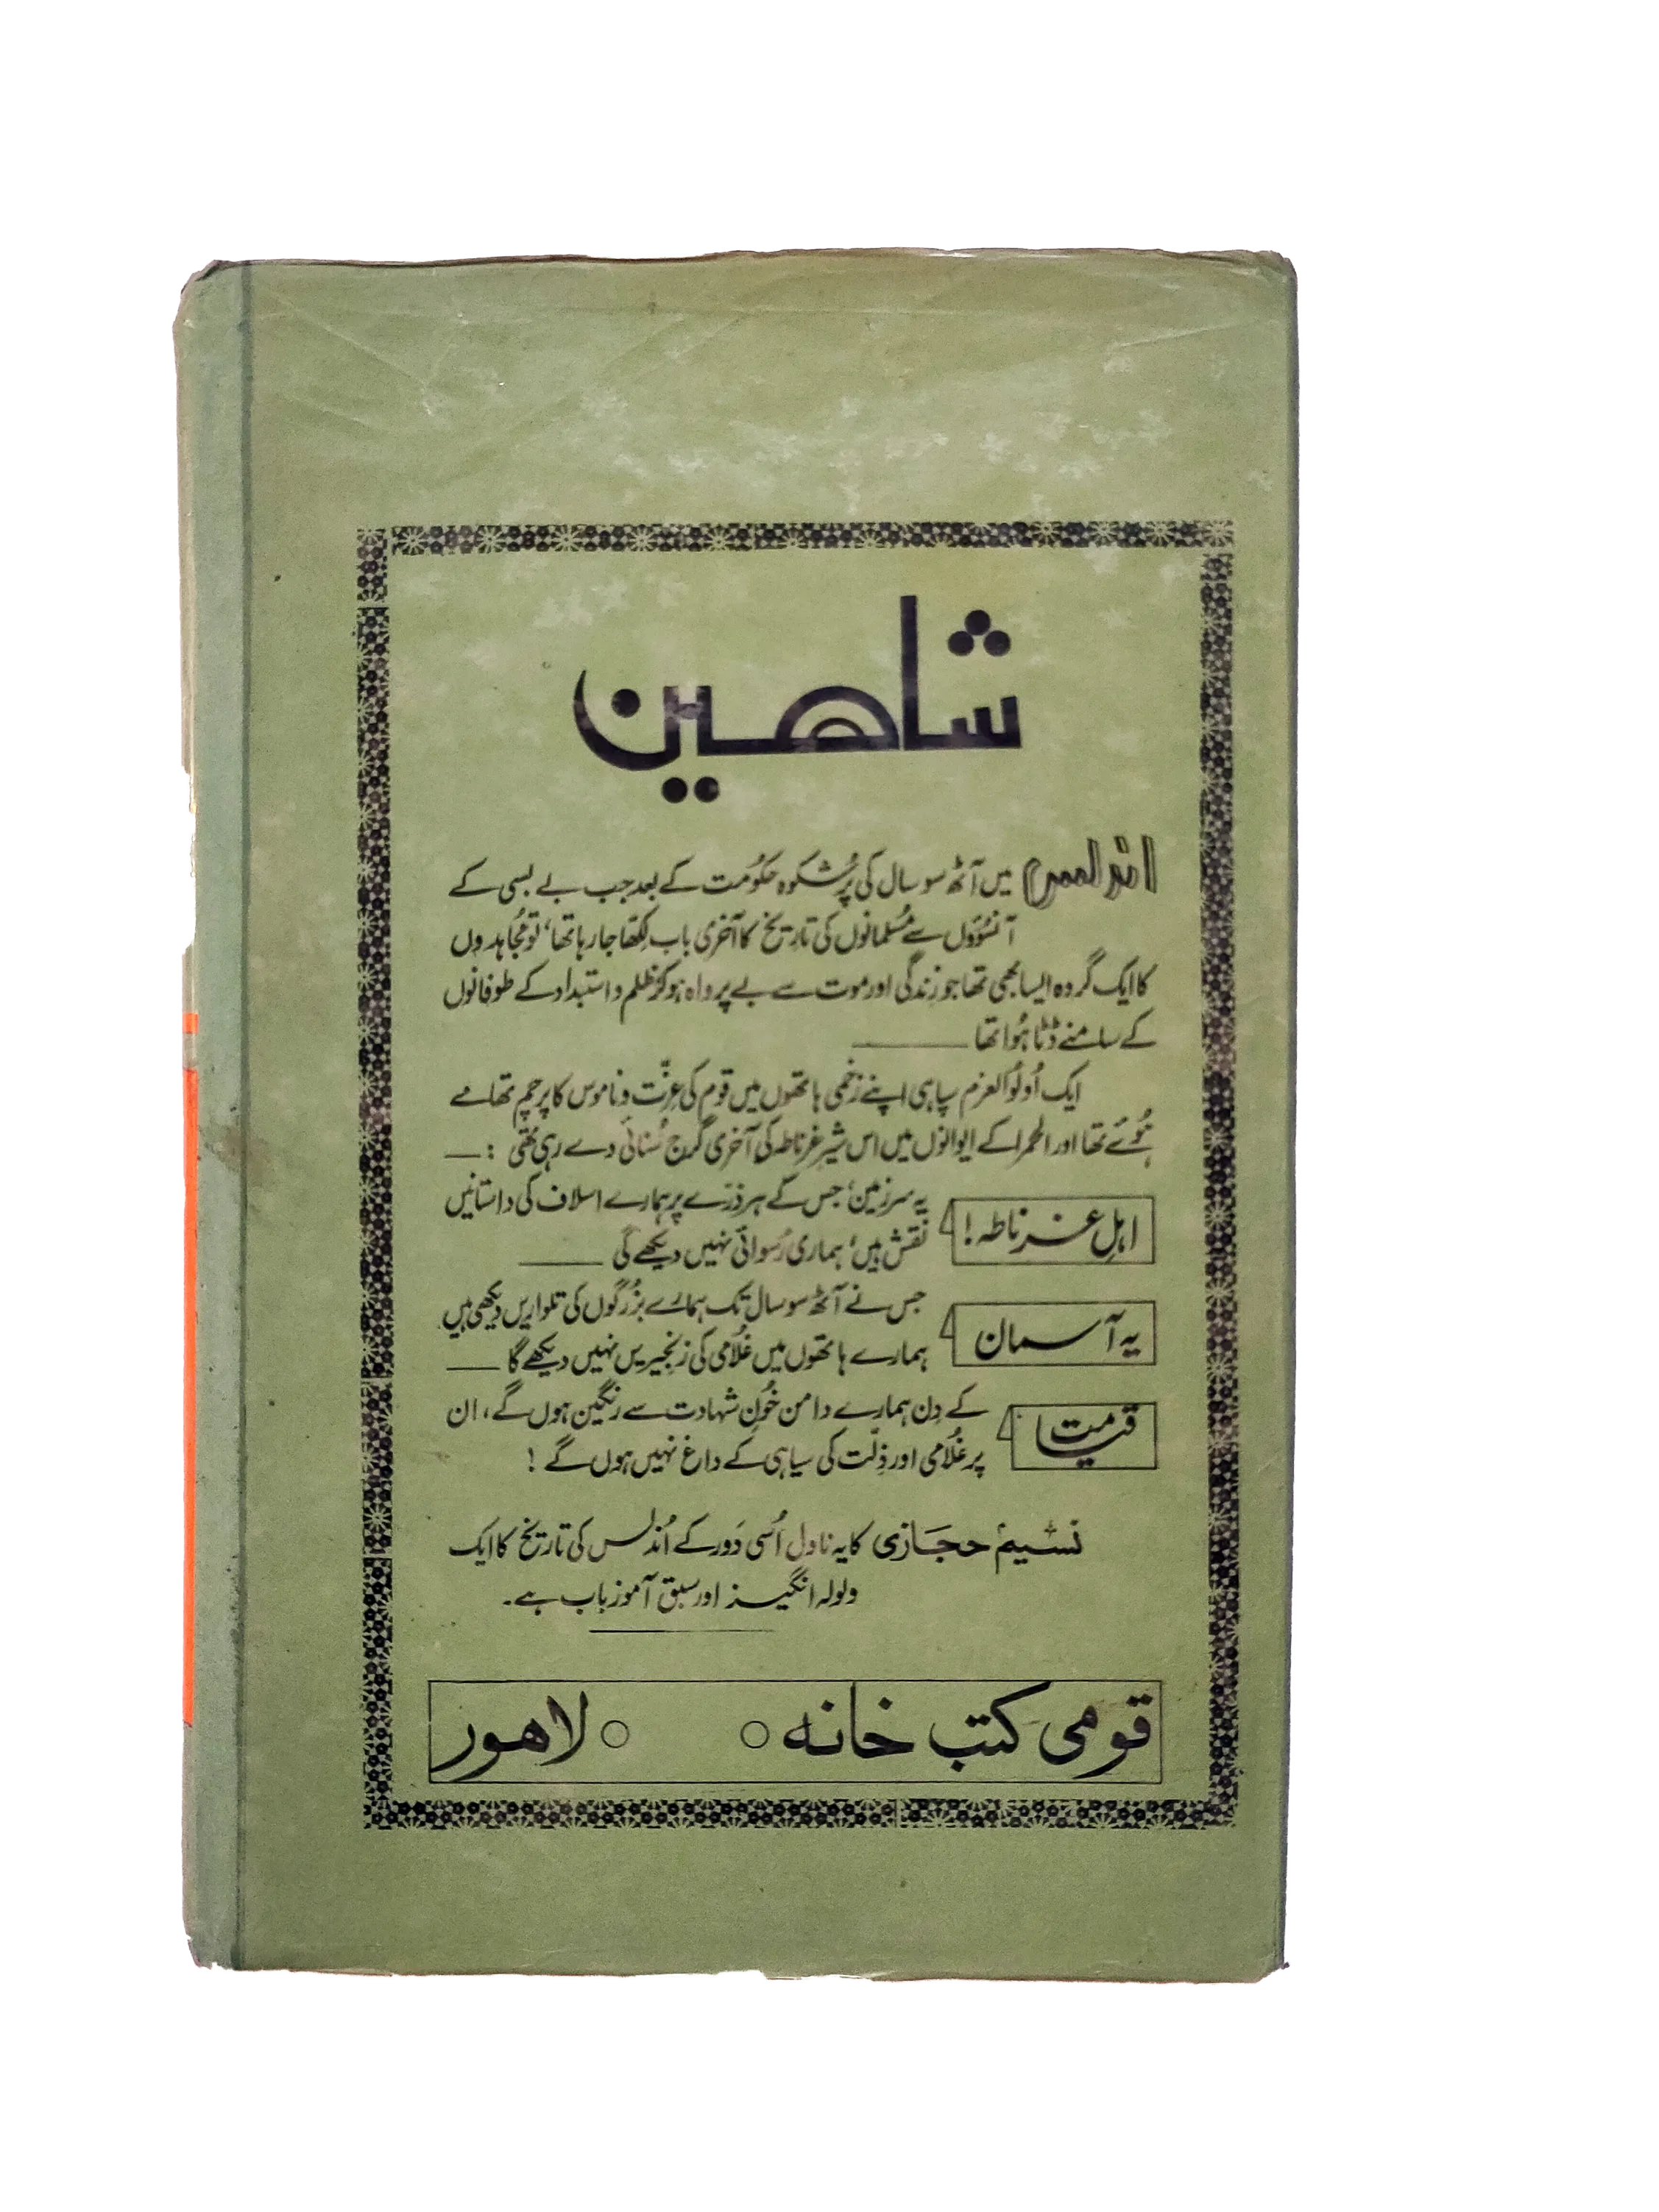 شاهين
اندلس میں آٹھ سو سال کی پُرشکوہ حکوُمت کے بعد جب بے بسی کے
آنسوؤں سے مُسلمانوں کی تاریخ کا آخری باب لِکھا جا رہا تھا، تو مُجاہدوں
کا ایک گروہ ایسا بھی تھا جو زِندگی اور موت سے بے پرواہ ہو کر ظلم و استبداد کے طوفانوں
کے سامنے ڈٹا ہُوا تھا ــــــــ
ایک اُولُوالعزم سپاہی اپنے زخمی ہاتھوں میں قوم کی عِزّت و ناموس کا پرچم تھامے
ہُوئے تھا اور الحمرا کے ایوانوں میں اس شیرِ غرناطہ کی آخری گرج سُنائی دے رہی تھی : ــــ
اہلِ غرناطہ! یہ سرزمین، جس کے ہر ذرّے پر ہمارے اسلاف کی داستانیں
نقش ہیں، ہماری رُسوائی نہیں دیکھے گی ــــــــ
یہ آسمان جس نے آٹھ سو سال تک ہمارے بزُرگوں کی تلواریں دیکھی ہیں
ہمارے ہاتھوں میں غلُامی کی زنجیریں نہیں دیکھے گا ــــــ
قیامت کے دِن ہمارے دامن خوُنِ شہادت سے رنگین ہوں گے، ان
پر غلُامی اور ذِلّت کی سیاہی کے داغ نہیں ہوں گے !
نسیم حجازی کا یہ ناول اُسی دَور کے اُندلس کی تاریخ کا ایک
ولولہ انگیز اور سبق آموز باب ہے۔
قومی کتب خانہ ○ ○ لاھور